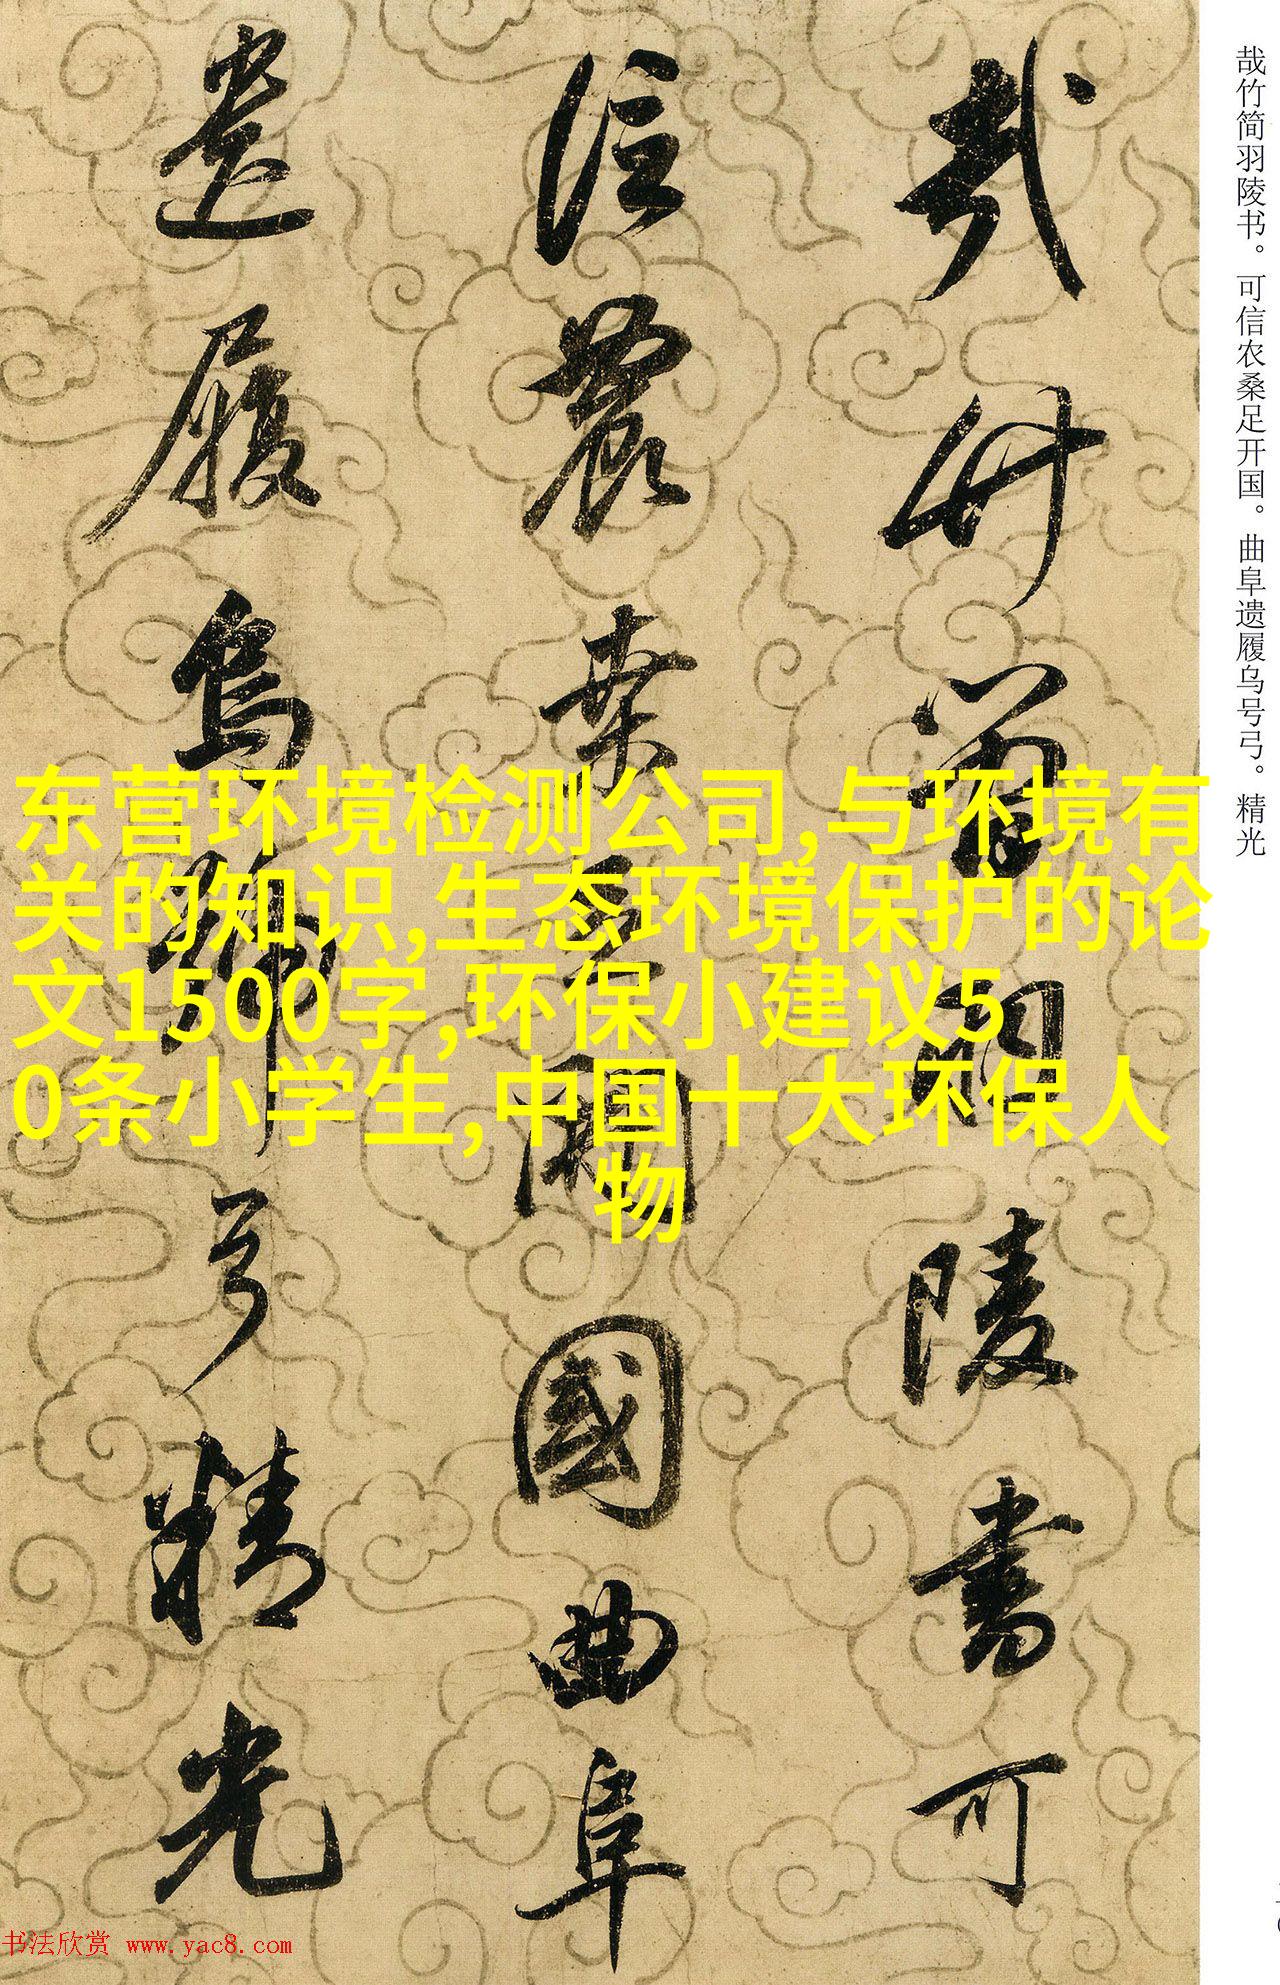 哉竹简羽陵书可
信农桑足开国曲阜
遗履乌号弓精光
哉竹简羽陵书。可信农桑足开国。曲阜遗履乌号弓。精光
东营环境检测公司,与环境有
关的知识,生态环境保护的论
文1500字,环保小建议5
0条小学生,中国十大环保人
物
书法欣赏 www.yac8.com